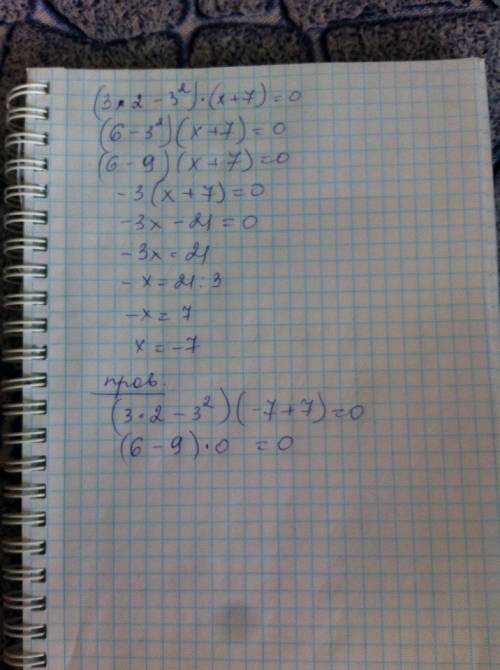 (3·2 - 3²)·(x+7)=0
(6-3²)(x+7)=0
(6-9)(x+7)=0
-3(x+7)=0
-3x-21=0
-3x=21
-x=21:3
-x=7
x=-7
пров.
(3·2-3²)(-7+7)=0
(6-9)·0 =0